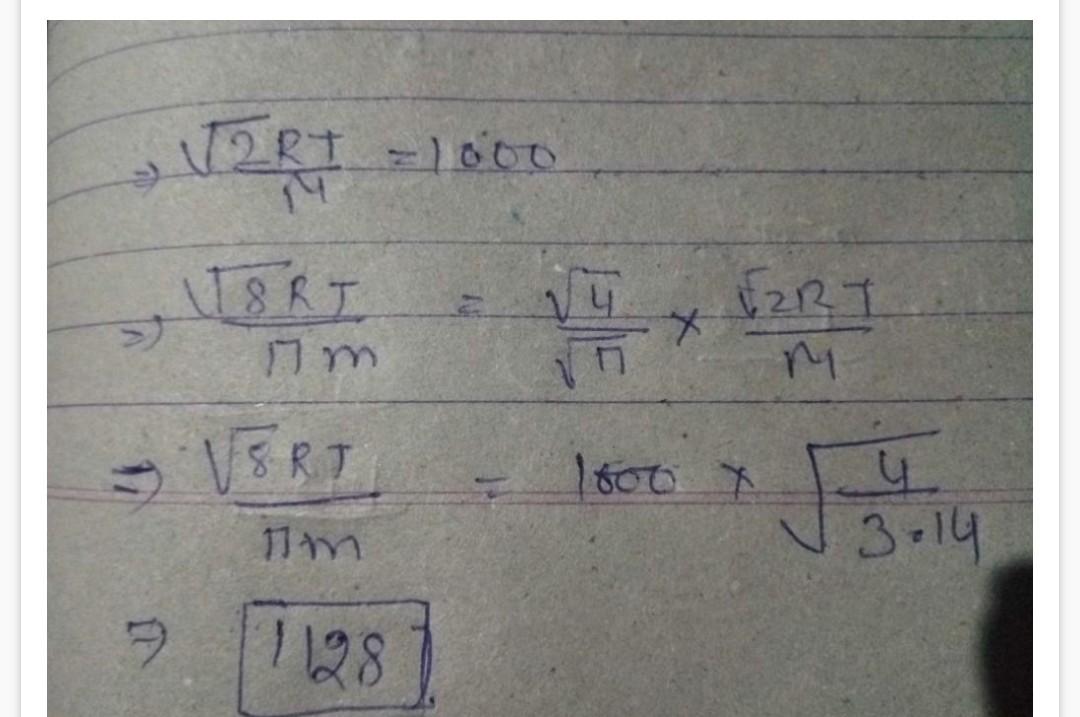 ⇒ √2RT/M = 1000
⇒ √8RT/πm = √4/√π × √2RT/M
⇒ √8RT/πm = 1000 × √4/3.14
⇒ 1128